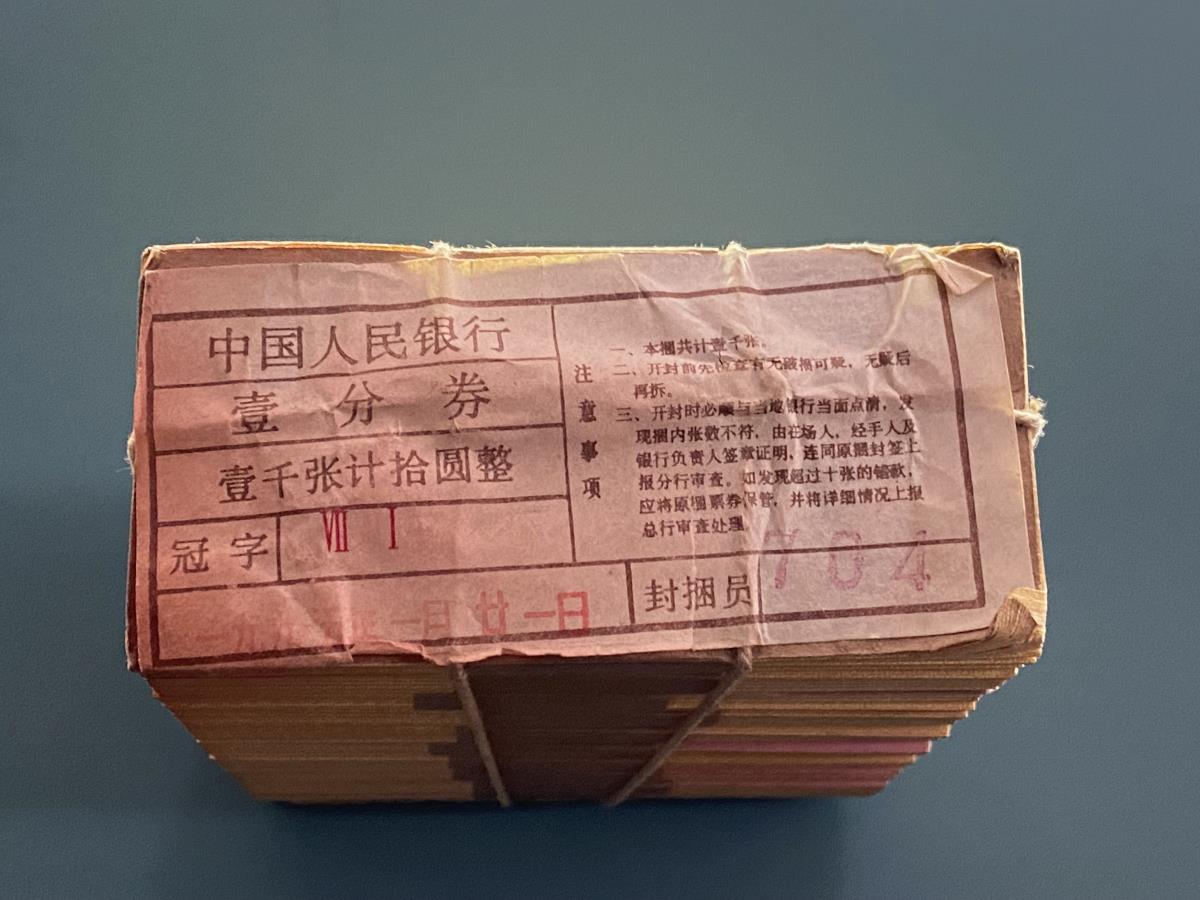 中国人民银行
壹分券
壹千张计拾圆整
冠字
Ⅶ Ⅰ
一九九 年一月廿一日
注意事项
一、本捆共计壹千张。
二、开封前先检查有无破捆可疑，无疑后
再拆。
三、开封时必须与当地银行当面点清，发
现捆内张数不符，由在场人，经手人及
银行负责人签章证明，连同原捆封签上
报分行审查。如发现超过十张的错款，
应将原捆票券保管，并将详细情况上报
总行审查处理
封捆员
704